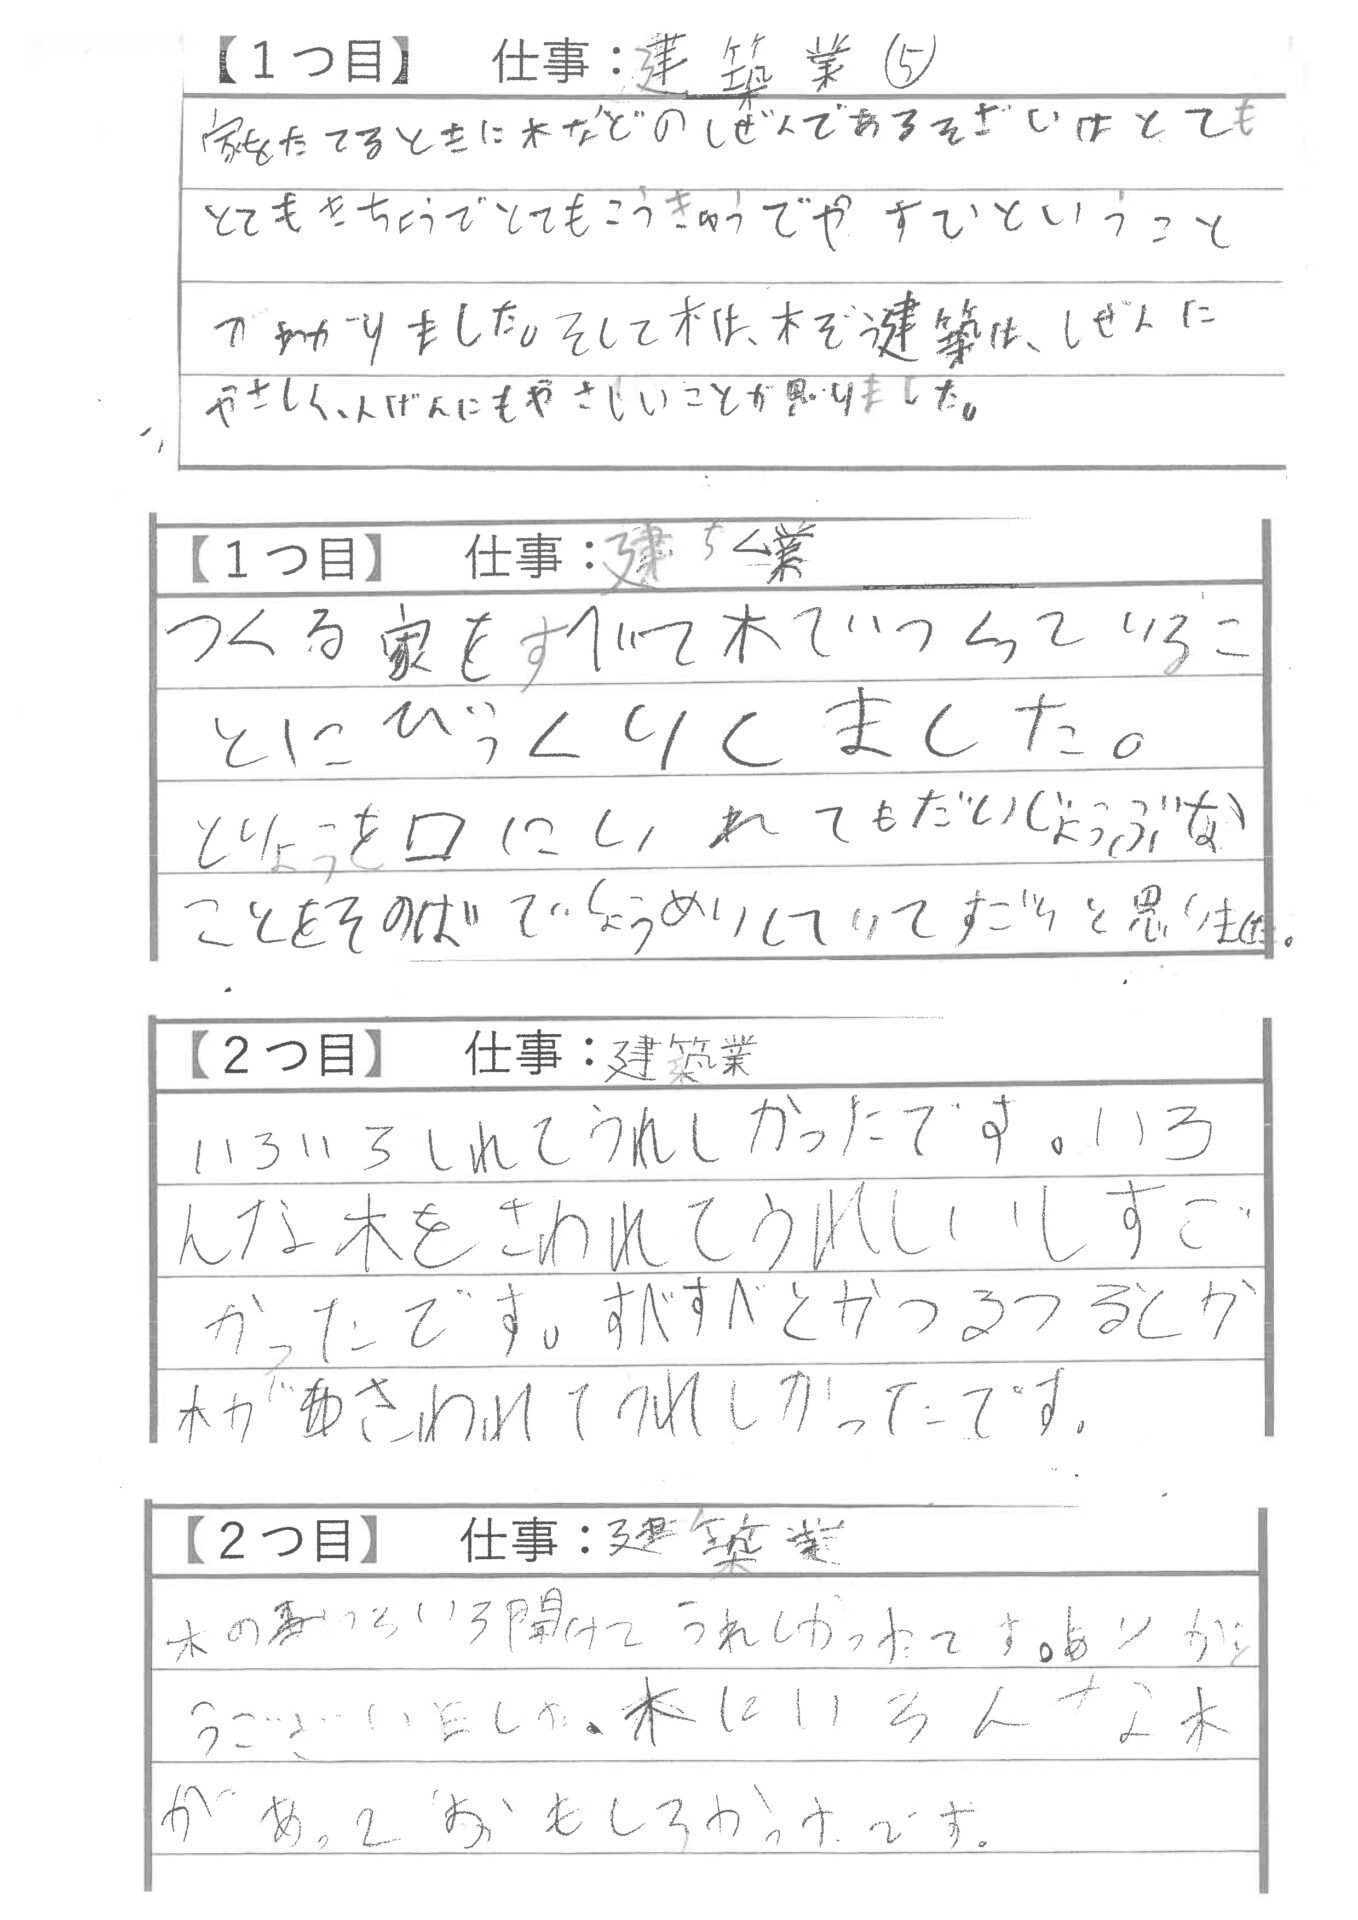 【1つ目】 仕事：建築業⑤
家をたてるときに木などのしぜんであるそざいはとても
とてもきちょうでとてもこうきゅうでやすいということ
がわかりました。そして木は、木ぞう建築は、しぜんに
やさしく、人げんにもやさしいことが思いました。
【1つ目】 仕事：建ちく業
つくる家をすべて木でつくっているこ
とにびっくりしました。
とりょうを口にいれてもだいじょうぶな
ことをそのばでしょうめいしていてすごいと思いました。
【2つ目】 仕事：建築業
いろいろしれてうれしかったです。いろ
んな木をさわれてうれしいしすご
かったです。すべすべとかつるつるとか
木がさわれてうれしかったです。
【2つ目】 仕事：建築業
木の事いろいろ聞けてうれしかったです。ありがと
うございました。木にいろんな木
があっておもしろかったです。